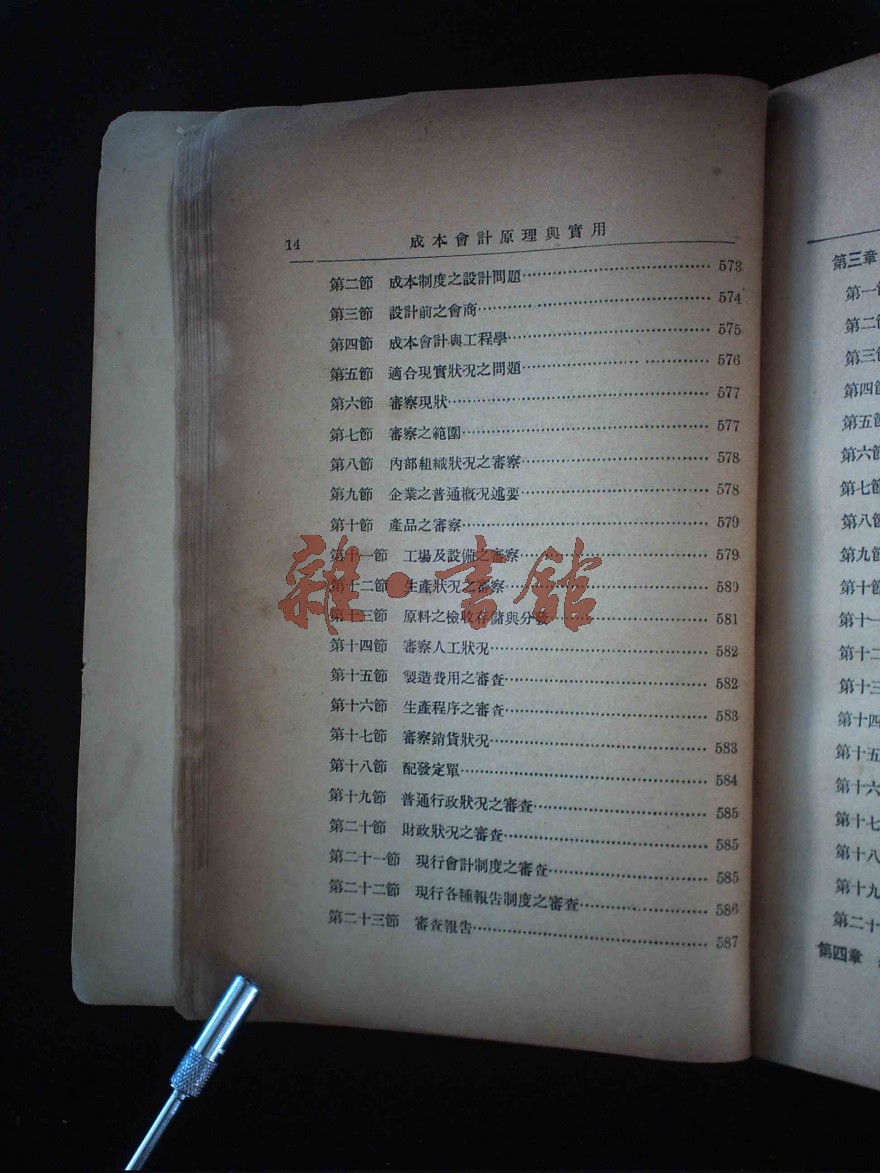 14
成本會計原理與實用
第二節 成本制度之設計問題……573
第三節 設計前之會商……574
第四節 成本會計與工程學……575
第五節 適合現實狀況之問題……576
第六節 審察現狀……577
第七節 審察之範圍……577
第八節 內部組織狀況之審察……578
第九節 企業之普通概況述要……578
第十節 產品之審察……579
第十一節 工場及設備之審察……579
第十二節 生產狀況之審察……580
第十三節 原料之檢收存儲與分發……581
第十四節 審察人工狀況……582
第十五節 製造費用之審查……582
第十六節 生產程序之審查……583
第十七節 審察銷貨狀況……583
第十八節 配發定單……584
第十九節 普通行政狀況之審查……585
第二十節 財政狀況之審查……585
第二十一節 現行會計制度之審查……585
第二十二節 現行各種報告制度之審查……586
第二十三節 審查報告……587
雜·書館
第三章
第一
第二
第三
第四
第五
第六
第七
第八
第九
第十
第十一
第十二
第十三
第十四
第十五
第十六
第十七
第十八
第十九
第二十
第四章